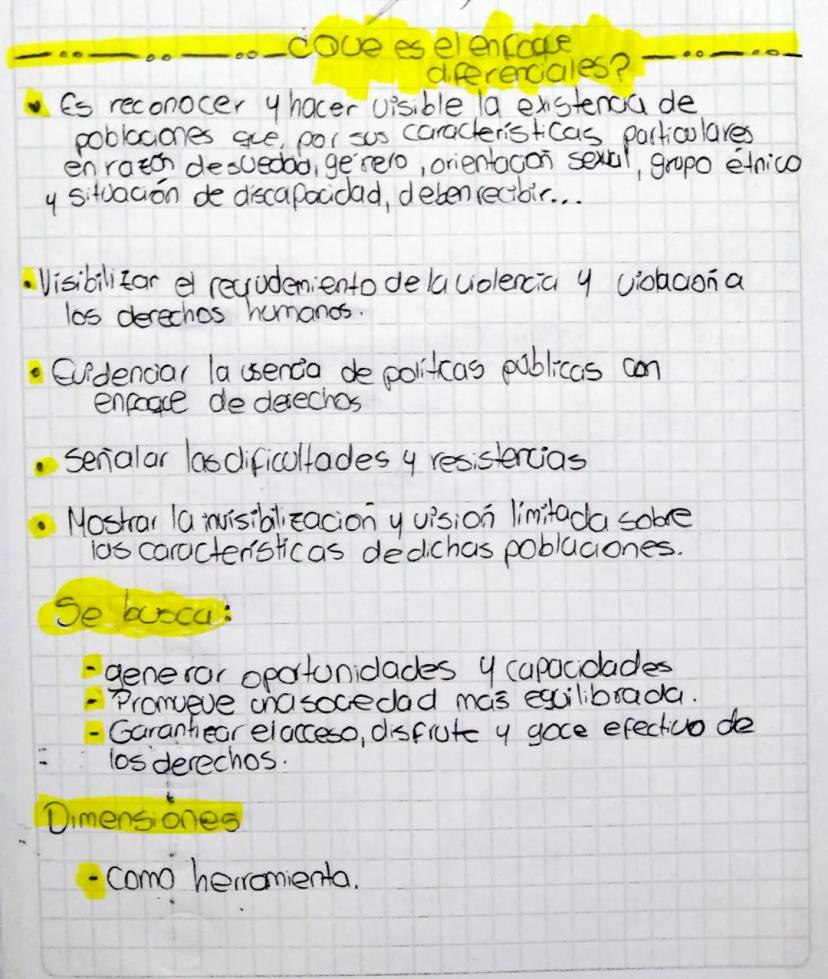 ¿Que es el enfoque
diferenciales?
Es reconocer y hacer visible la existencia de
poblaciones que, por sus características particulares
en razón de su edad, género, orientación sexual, grupo étnico
y situación de discapacidad, deben recibir...
Visibilizar el recrudemiento de la violencia y violación a
los derechos humanos.
Evidenciar la usencia de polítcas públicas con
enfoque de derechos
Señalar las dificultades y resistencias
Mostrar la invisibilización y visión limitada sobre
las características de dichas poblaciones.
Se busca:
- generar oportunidades y capacidades
- Promueve una sociedad más equilibrada.
- Garantizar el acceso, disfrute y goce efectivo de
los derechos.
Dimensiones
- Como herramienta.